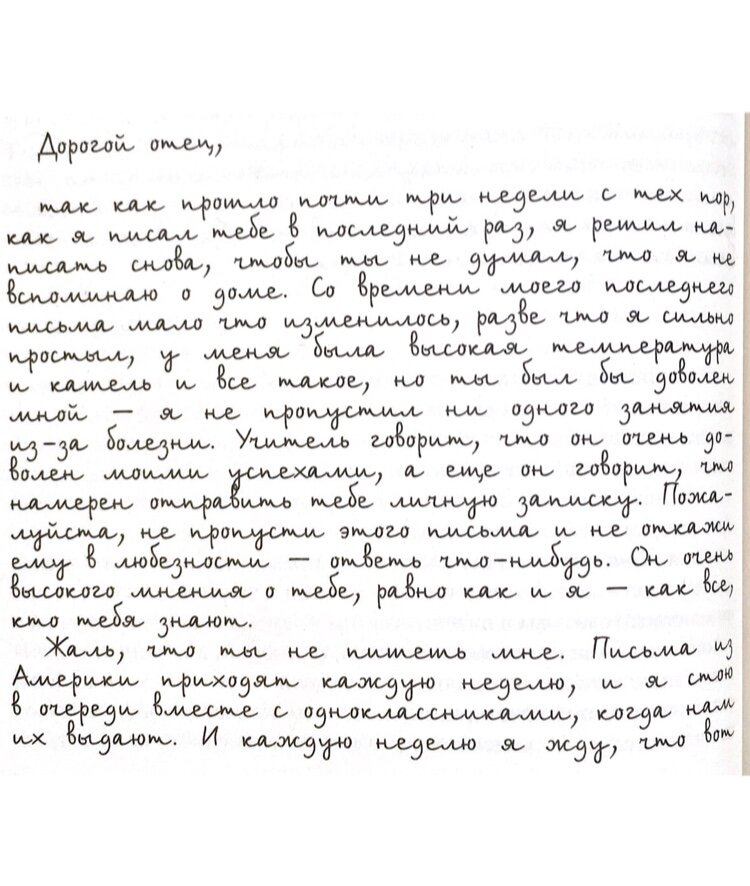 Дорогой отец,
так как прошло почти три недели с тех пор,
как я писал тебе в последний раз, я решил на-
писать снова, чтобы ты не думал, что я не
вспоминаю о доме. Со времени моего последнего
письма мало что изменилось, разве что я сильно
простыл, у меня была высокая температура
и кашель и все такое, но ты был бы доволен
мной — я не пропустил ни одного занятия
из-за болезни. Учитель говорит, что он очень до-
волен моими успехами, а еще он говорит, что
намерен отправить тебе личную записку. Пожа-
луйста, не пропусти этого письма и не откажи
ему в любезности — ответь что-нибудь. Он очень
высокого мнения о тебе, равно как и я — как все,
кто тебя знают.
Жаль, что ты не пишешь мне. Письма из
Америки приходят каждую неделю, и я стою
в очереди вместе с одноклассниками, когда нам
их выдают. И каждую неделю я жду, что вот